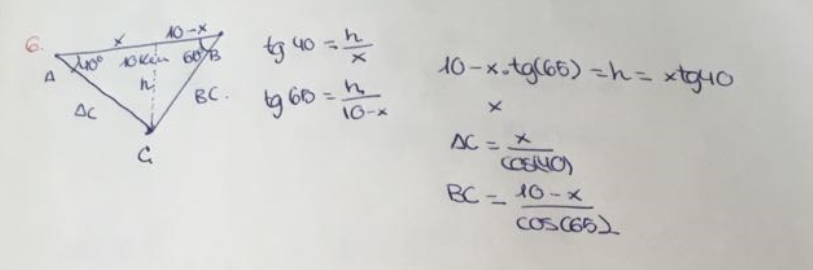 6.
x 10-x
A 40° 10km 60° B
h
AC BC.
C
tg 40 = h/x
tg 60 = h/10-x
10-x.tg(65) = h = xtg40
x
AC = x/cos(40)
BC = 10-x/cos(65)